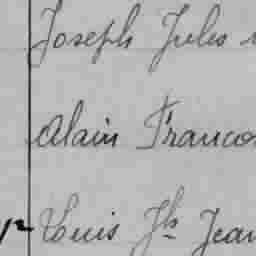 Joseph Jules
Alain Franco
Louis Jh Jean